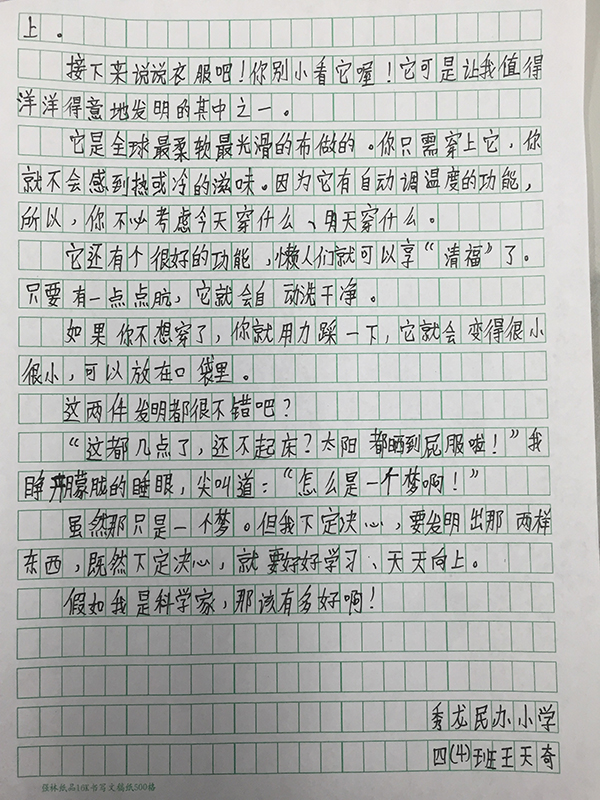 上。
接下来说说衣服吧！你别小看它喔！它可是让我值得
洋洋得意地发明的其中之一。
它是全球最柔软最光滑的布做的。你只需穿上它，你
就不会感到热或冷的滋味。因为它有自动调温度的功能，
所以，你不必考虑今天穿什么、明天穿什么。
它还有个很好的功能，懒人们就可以享“清福”了。
只要有一点点肮，它就会自动洗干净。
如果你不想穿了，你就用力踩一下，它就会变得很小
很小，可以放在口袋里。
这两件发明都很不错吧？
“这都几点了，还不起床？太阳都晒到屁服啦！”我
睁开朦胧的睡眼，尖叫道：“怎么是一个梦啊！”
虽然那只是一个梦。但我下定决心，要发明出那两样
东西，既然下定决心，就要好好学习、天天向上。
假如我是科学家，那该有多好啊！
秀龙民办小学
四(4)班王天奇
强林纸品16K书写文稿纸500格